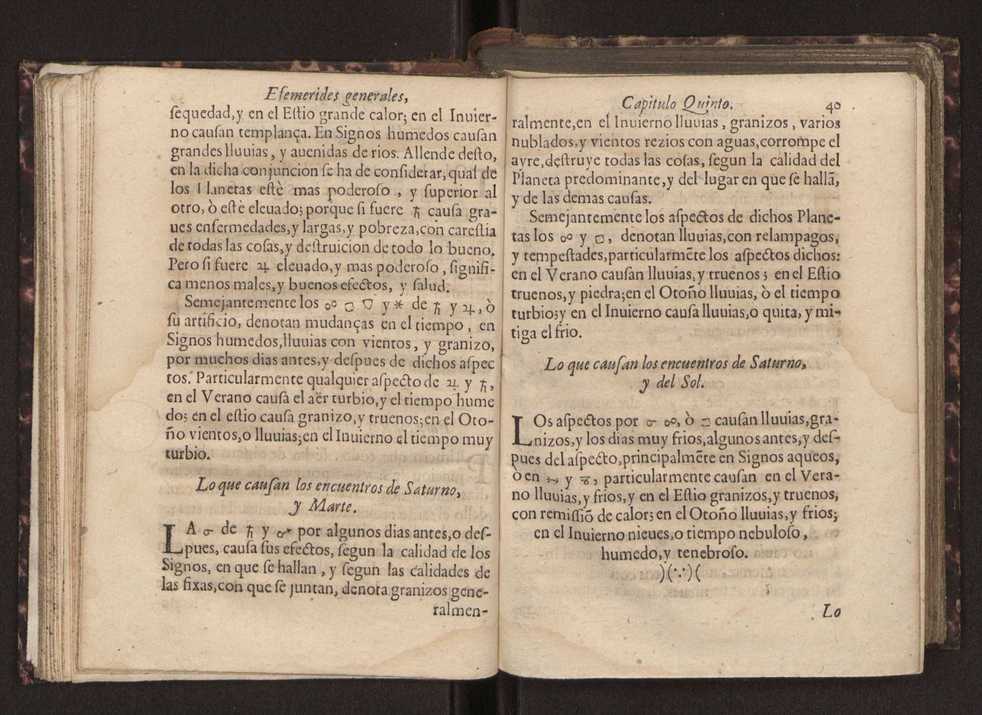 Efemerides generales,
ſequedad, y en el Eſtio grande calor; en el Inuier-
no cauſan templança. En Signos humedos cauſan
grandes lluuias, y auenidas de rios. Allende deſto,
en la dicha conjuncion ſe ha de conſiderar, qual de
los Planetas eſtè mas poderoſo, y ſuperior al
otro, ò eſtè eleuado; porque ſi fuere ♄ cauſa gra-
ues enfermedades, y largas, y pobreza, con careſtia
de todas las coſas, y deſtruicion de todo lo bueno.
Pero ſi fuere ♃ eleuado, y mas poderoſo, ſignifi-
ca menos males, y buenos efectos, y ſalud.
Semejantemente los ☍ □ ▽ y ✶ de ♄ y ♃, ò
ſu artificio, denotan mudanças en el tiempo, en
Signos humedos, lluuias con vientos, y granizo,
por muchos dias antes, y deſpues de dichos aſpec
tos. Particularmente qualquier aſpecto de ♃ y ♄,
en el Verano cauſa el aër turbio, y el tiempo hume
do; en el eſtio cauſa granizo, y truenos; en el Oto-
ño vientos, o lluuias; en el Inuierno el tiempo muy
turbio.
Lo que cauſan los encuentros de Saturno,
y Marte.
LA ☌ de ♄ y ♂ por algunos dias antes, o deſ-
pues, cauſa ſus efectos, ſegun la calidad de los
Signos, en que ſe hallan, y ſegun las calidades de
las fixas, con que ſe juntan, denota granizos gene-
ralmen-
Capitulo Quinto. 40
ralmente, en el Inuierno lluuias, granizos, varios
nublados, y vientos rezios con aguas, corrompe el
ayre, deſtruye todas las coſas, ſegun la calidad del
Planeta predominante, y del lugar en que ſe hallã,
y de las demas cauſas.
Semejantemente los aſpectos de dichos Plane-
tas los ☍ y □, denotan lluuias, con relampagos,
y tempeſtades, particularmẽte los aſpectos dichos:
en el Verano cauſan lluuias, y truenos; en el Eſtio
truenos, y piedra; en el Otoño lluuias, ò el tiempo
turbio; y en el Inuierno cauſa lluuias, o quita, y mi-
tiga el frio.
Lo que cauſan los encuentros de Saturno,
y del Sol.
LOs aſpectos por ☌ ☍, ò □ cauſan lluuias, gra-
nizos, y los dias muy frios, algunos antes, y deſ-
pues del aſpecto, principalmẽte en Signos aqueos,
ò en ♐ y ♑, particularmente cauſan en el Vera-
no lluuias, y frios, y en el Eſtio granizos, y truenos,
con remiſſiõ de calor; en el Otoño lluuias, y frios;
en el Inuierno nieues, o tiempo nebuloſo,
humedo, y tenebroſo.
)(∵)(
Lo